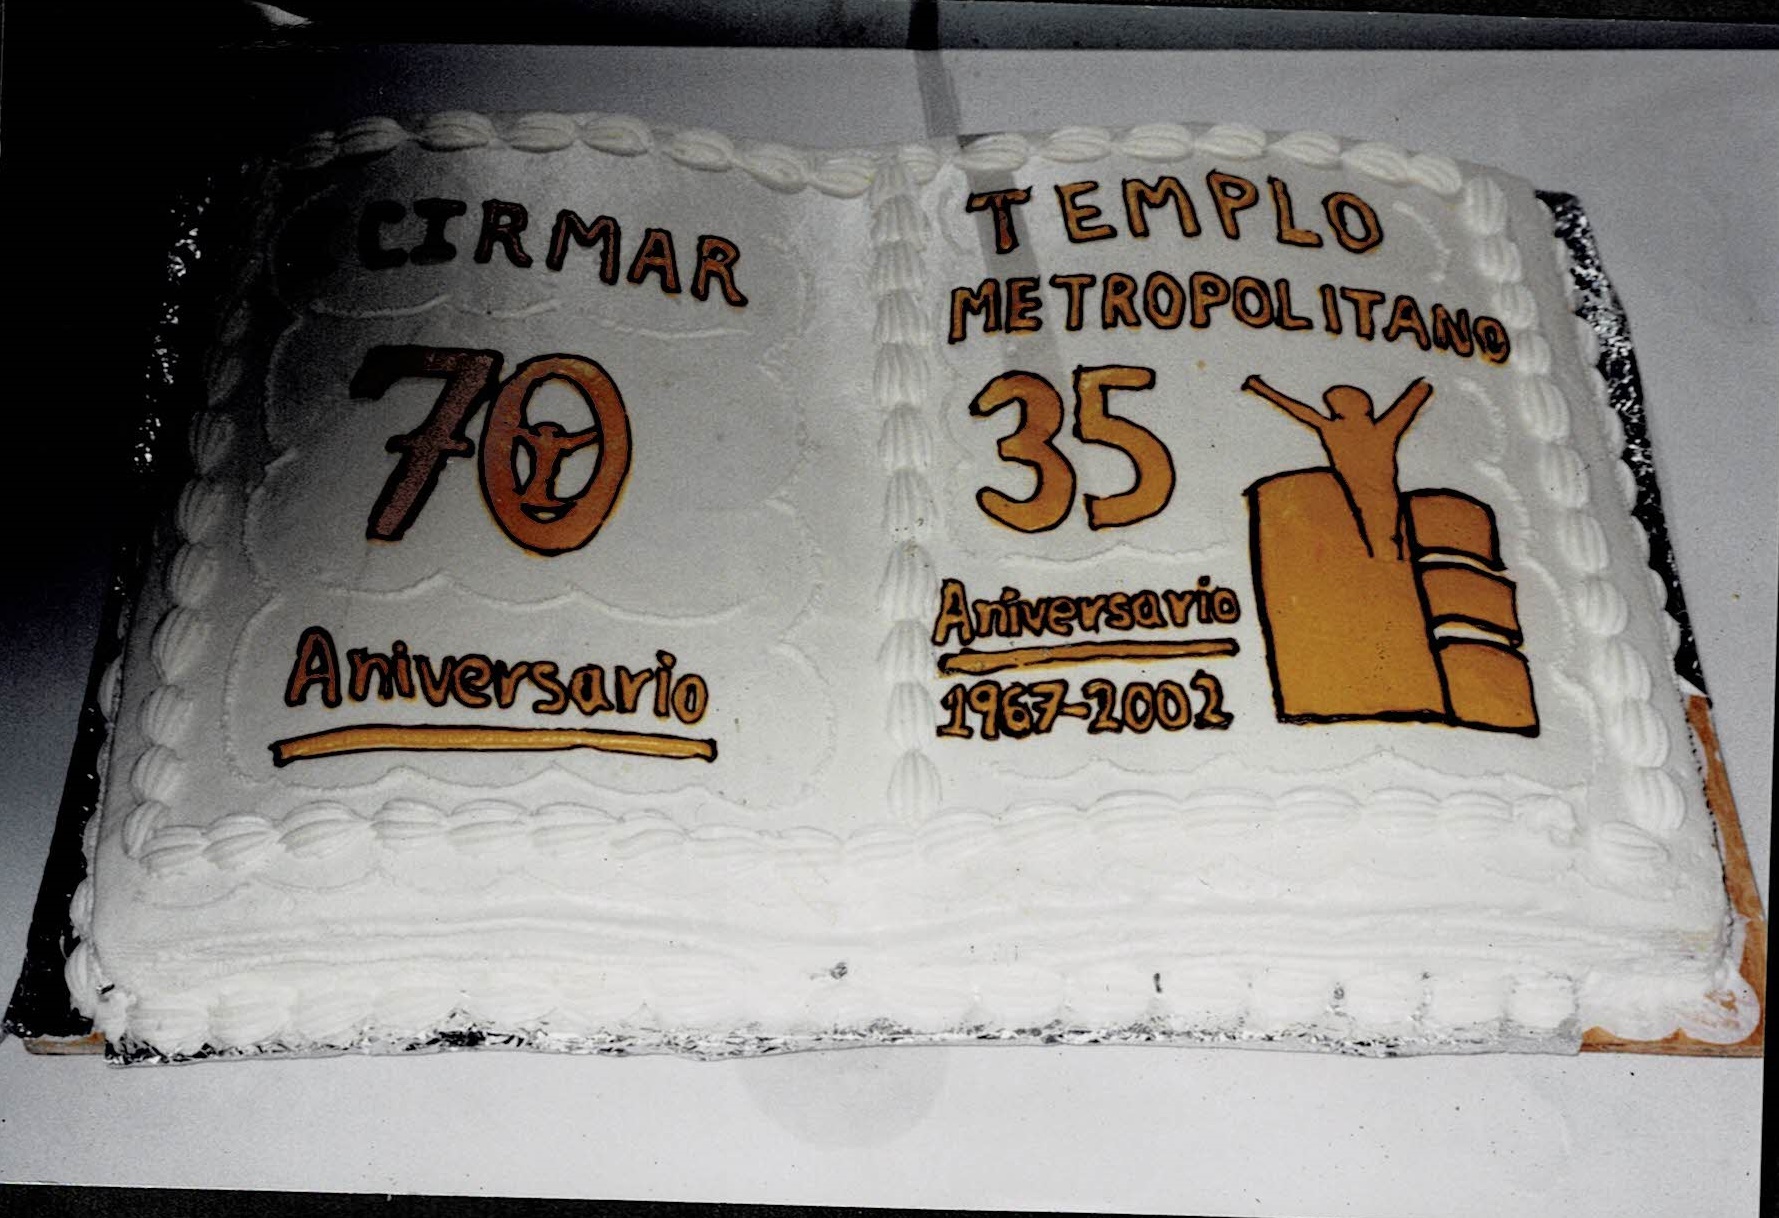 CIRMAR
70
Aniversario
TEMPLO
METROPOLITANO
35
Aniversario
1967-2002